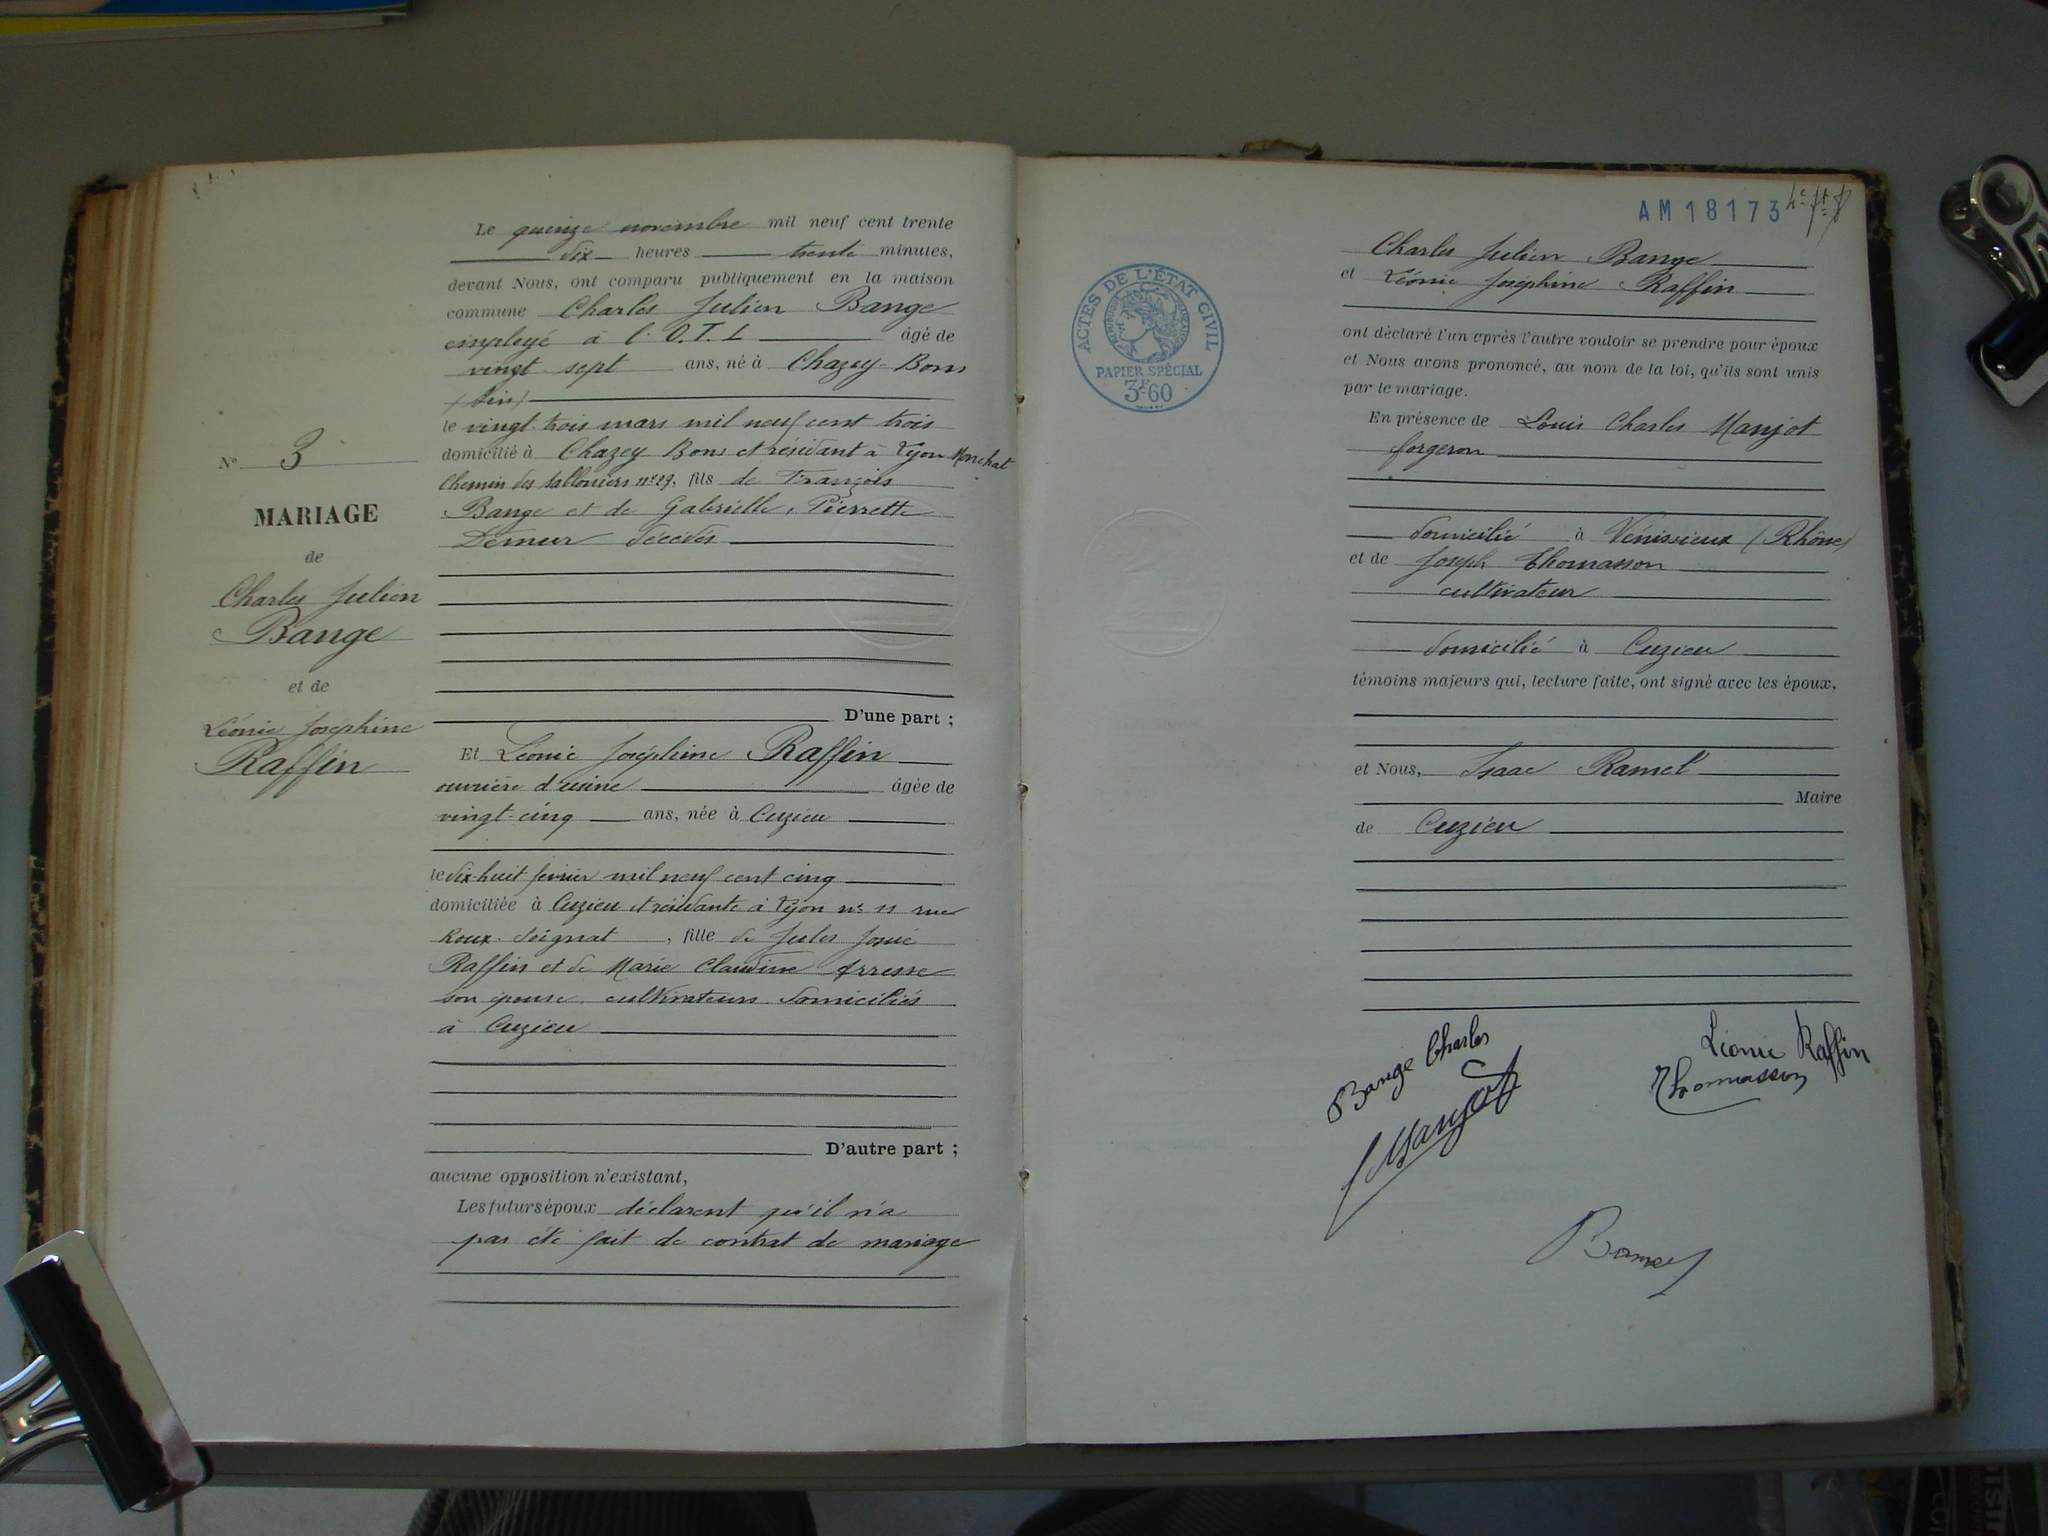 Le quinze novembre mil neuf cent trente
dix heures trente minutes,
devant Nous, ont comparu publiquement en la maison
commune Charles Julien Bange
employé à l'O.T.L âgé de
vingt-sept ans, né à Chazey-Bons
(Ain)
le vingt-trois mars mil neuf cent trois
domicilié à Chazey Bons et résidant à Lyon Monchat
Chemin des Sablonniers n° 29, fils de François
Bange et de Gabrielle, Pierrette
Demur décédés
N° 3
MARIAGE
de
Charles Julien
Bange
et de
Léonie Joséphine
Raffin
D'une part ;
Et Léonie Joséphine Raffin
ouvrière d'usine âgée de
vingt-cinq ans, née à Cuzieu
le dix-huit février mil neuf cent cinq
domiciliée à Cuzieu et résidante à Lyon n° 11 rue
Roux-Soignat, fille de Jules Josué
Raffin et de Marie Claudine
son épouse cultivateurs domiciliés
à Cuzieu
D'autre part ;
aucune opposition n'existant,
Les futurs époux déclarent qu'il n'a
pas été fait de contrat de mariage
AM18173
Charles Julien Bange
et Léonie Joséphine Raffin
ACTES DE L'ÉTAT CIVIL
RÉPUBLIQUE FRANÇAISE
PAPIER SPÉCIAL
3F60
ont déclaré l'un après l'autre vouloir se prendre pour époux
et Nous avons prononcé, au nom de la loi, qu'ils sont unis
par le mariage.
En présence de Louis Charles Manjot
forgeron
domicilié à Vénissieux (Rhône)
et de Joseph Thomasson
cultivateur
domicilié à Cuzieu
témoins majeurs qui, lecture faite, ont signé avec les époux,
et Nous, Isaac Ramel
Maire
de Cuzieu
Bange Charles
Léonie Raffin
Thomasson
Manjot
Ramel